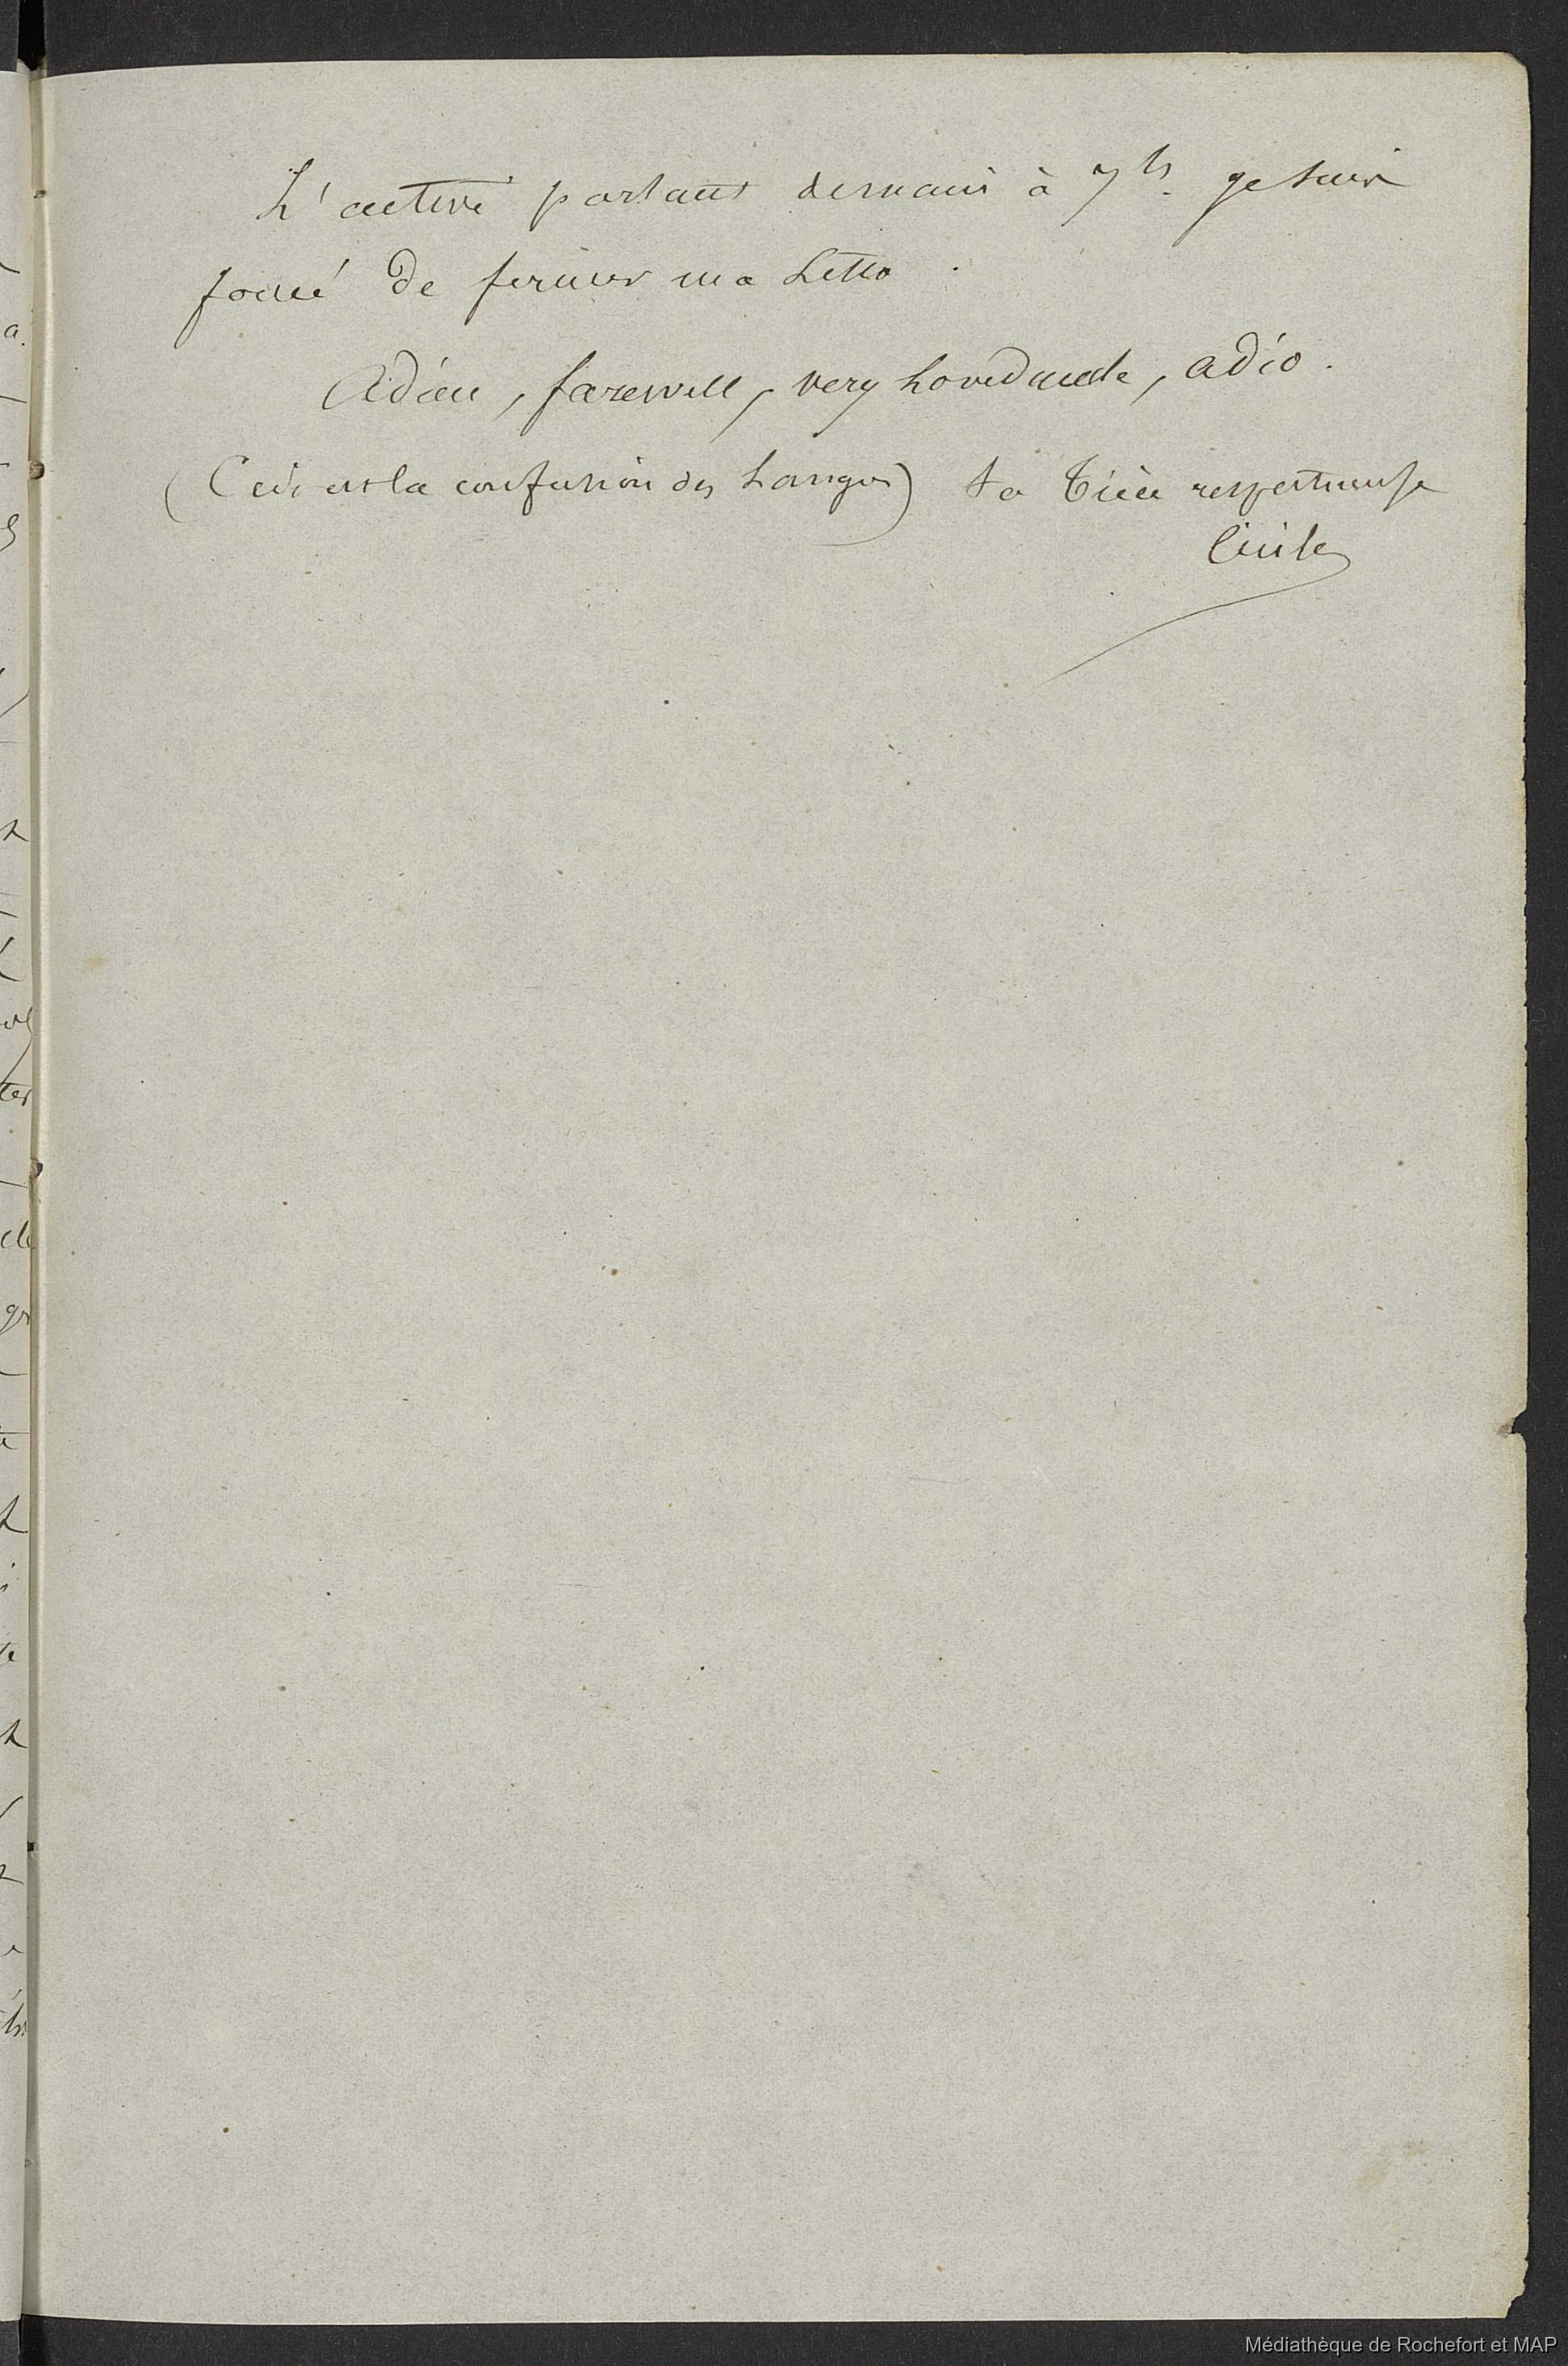 L'active partant demain à 7h. je suis
forcé de fermer ma lettre.
Adieu, farewell, very loved aunt, adio.
(Ceci est la confusion des langues) ta nièce respectueuse
Cécile
Médiathèque de Rochefort et MAP